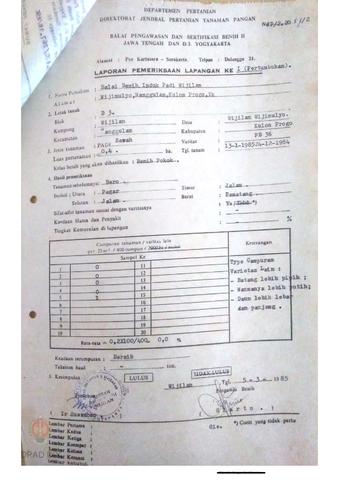 DEPARTEMEN PERTANIAN
DIREKTORAT JENDRAL PERTANIAN TANAMAN PANGAN
BALAI PENGAWASAN DAN SERTIFIKASI BENIH II
JAWA TENGAH DAN D.I. YOGYAKARTA
Alamat : Pos Kartasura - Surakarta. Telpon : Delanggu 21.
LAPORAN PEMERIKSAAN LAPANGAN KE I (Pertumbuhan).
1. Nama Pemohon : Balai Benih Induk Padi Wijilan
Alamat : Wijimulyo, Nanggulan, Kulon Progo, Yk
2. Letak tanah
Blok : Wijilan Desa : Wijilan Wijimulyo.
Kampung : Kabupaten : Kulon Progo
Kecamatan : Nanggulan Varitas : PB 36
3. Jenis tanaman : PADI Sawah
Luas pertanaman : 0,4 ha. Tgl. tanam
Kelas benih yang akan dihasilkan : Benih Pokok.
4. Hasil pemeriksaan
Tanaman sebelumnya : Baru Timur : Jalan
Isolasi : Utara : Pagar Barat : Bematang
Selatan : Jalan
Sifat-sifat tanaman sesuai dengan varitasnya : Ya/Tidak *)
Keadaan Hama dan Penyakit
Tingkat Kemurnian di lapangan %
Campuran tanaman / varitas lain
Sampel Ke
Keterangan
1 0 11
2 0 12
3 0 13
4 0 14
5 1 15
6 16
7 17
8 18
9 19
10 20
Type Campuran
Varietas Lain :
- Batang lebih
- Warnanya lebih putih;
- Daun lebih lebar
dan panjang.
Rata-rata = 0,2X100/400 0,0 %
Keadaan rerumputan : Bersih
Taksiran hasil ton.
5. Kesimpulan : LULUS TIDAK LULUS
Wijilan Tgl. 5-3-1985
Pengawas Benih
Ir
*) Coret yang tidak perlu
Lembar Pertama
Lembar Kedua
Lembar Ketiga
Lembar Keempat
Lembar Kelima
Lembar Keenam